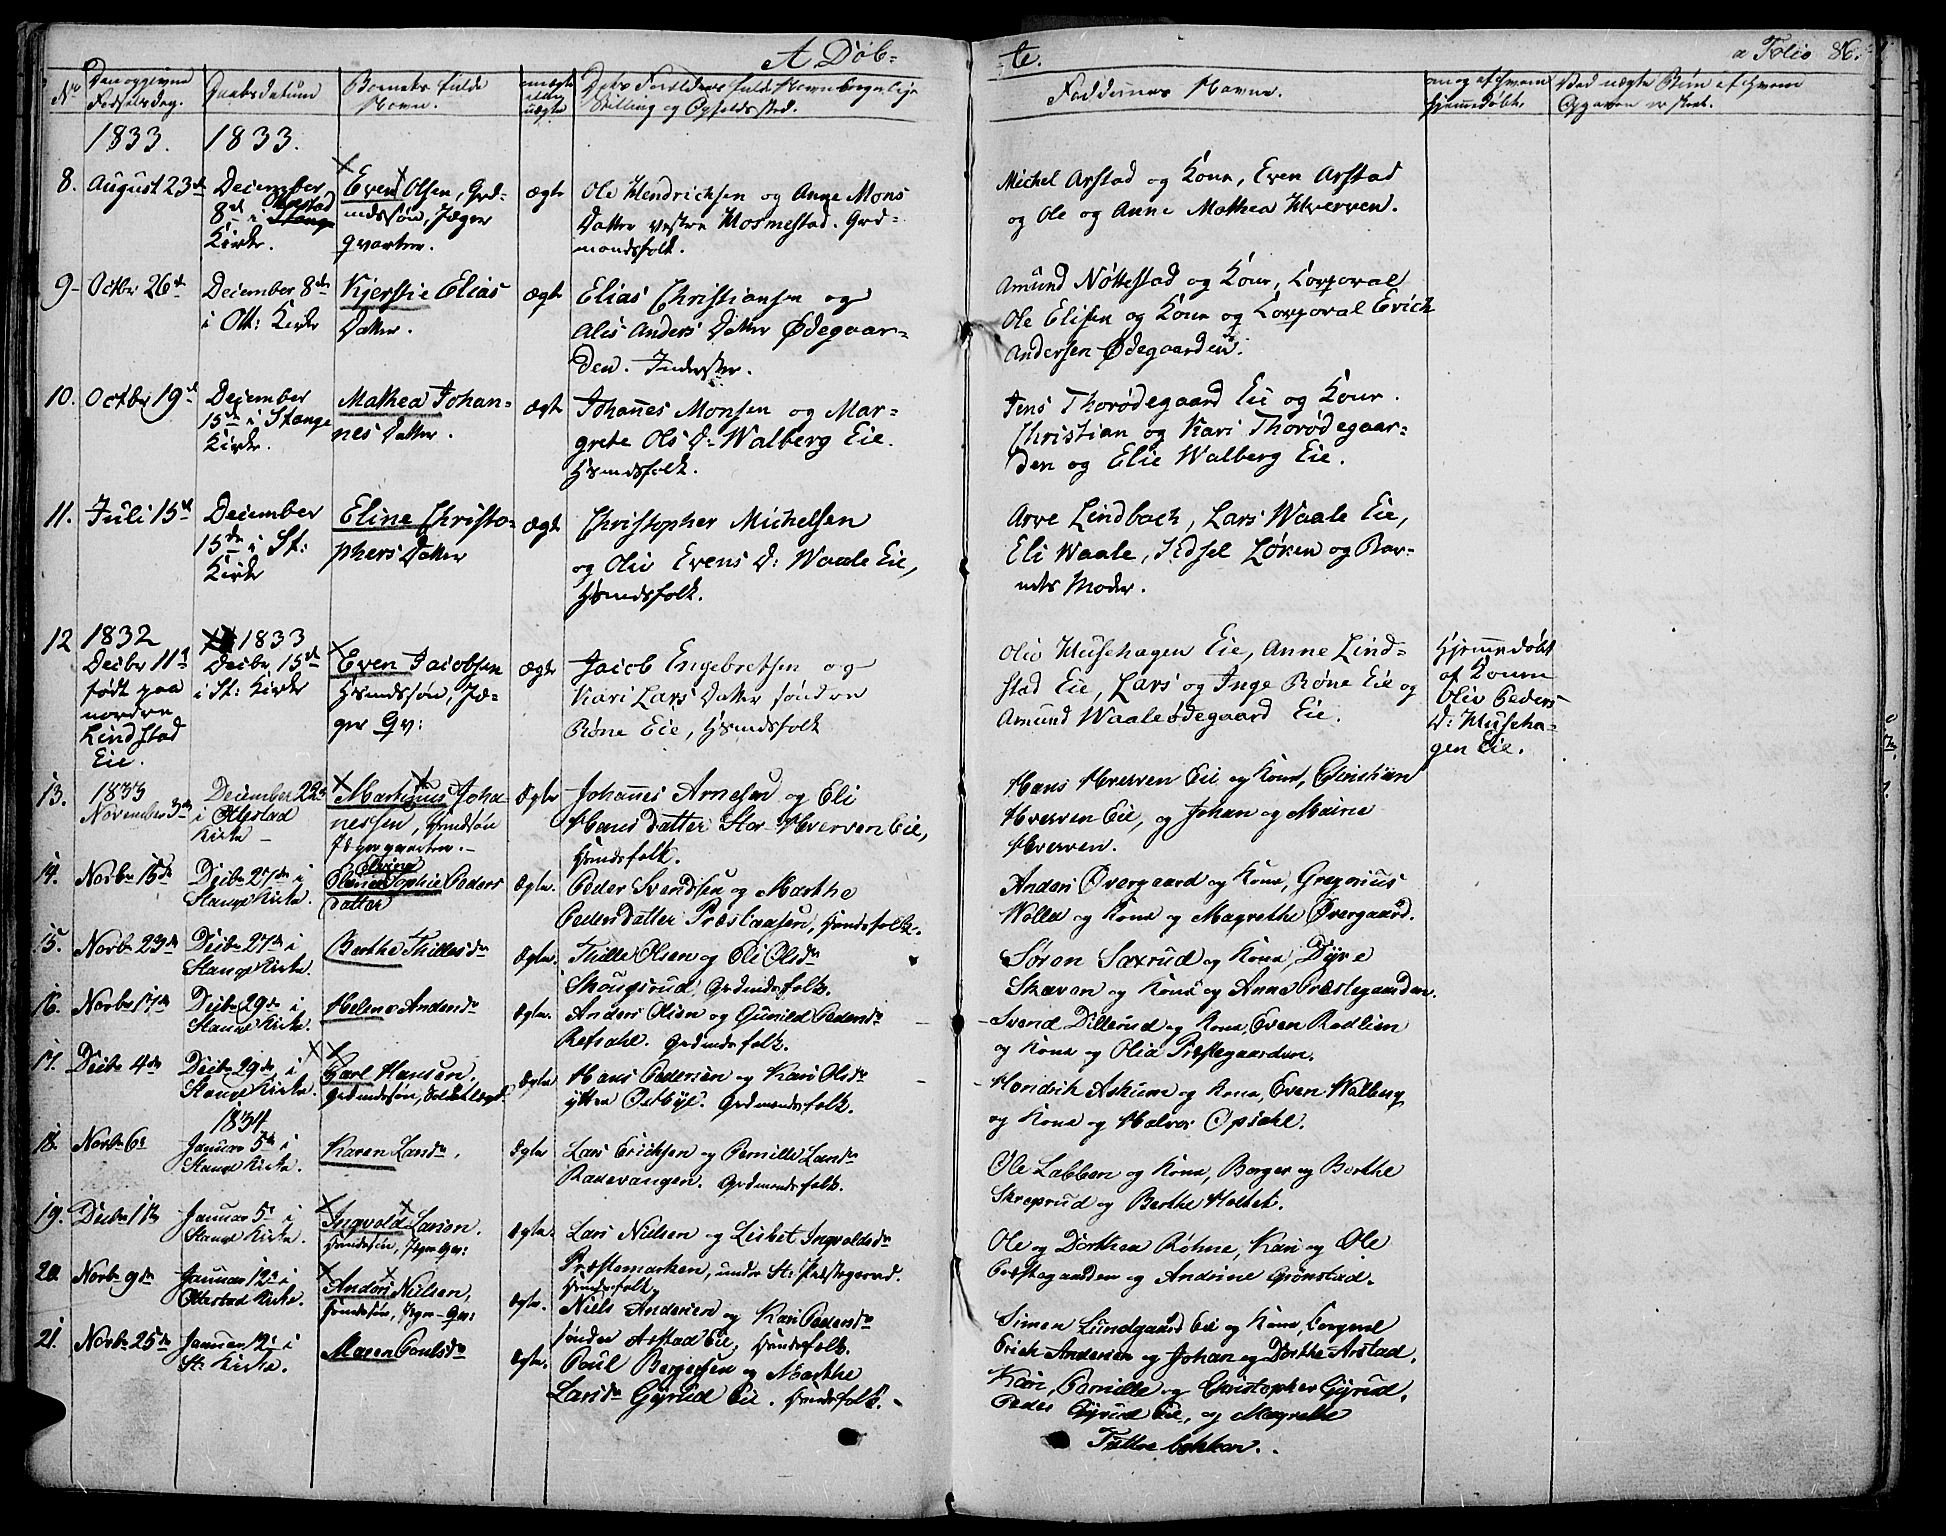 A Døb-
te.
a Folio 86.
No
Den opgivne
Fødselsdag.
Daabsdatum
Barnets fulde
Navn.
uægte
Stilling og Opholdssted.
Faddernes Navne.
1833.
1833.
8.
August 23de
December
8de i Ottestad Stange
Kirke.
Even Olsen, Grd-
mdssøn, Jæger
qvarteer.
Ægte
Ole Hendrichsen og Anne Mons
Datter vestre Hosmestad. Grd-
mandsfolk.
Michel Arstad og Kone, Even Arstad
og Ole og Anne Mathea Hverven.
9-
Octbr 26de
December 8de
i Ott: Kirke
Kjerstie Elias
Datter.
Ægte
Elias Christiansen og
Alis Anders Datter Ødegaar-
den. Inderster.
Amund Nøttestad og Kone, Corporal
Ole Elisen og Kone og Corporal Erich
Andersen Ødegaarden.
10.
Octbr 19de
December
15de i Stange
Kirke.
Mathea Johan-
nes Datter.
Ægte
Johannes Monsen og Mar-
grete Ols D: Walberg Eie.
Hsmdsfolk.
Jens Thorødegaard Eie og Kone.
Christian og Kari Thorødegaar-
den og Elie Walberg Eie.
11.
Juli 15de
December
15de i St:
Kirke
Eline Christo-
phers Datter
Ægte
Christopher Michelsen
og Oliv Evens D: Waale Eie,
Hsmdsfolk.
Arve Lindbach, Lars Waale Eie,
Eli Waale, Sidsel Løken og Bar-
nets Moder.
12
1832
Decbr 11te
født paa
nordre
Lindstad
Eie.
1833
Decbr. 15de
i St: Kirke
Even Jacobsen
Hsmdssøn, Jæ-
ger Qv:
Ægte
Jacob Engebretsen og
Kari Lars Datter søndre
Røne Eie, Hsmdsfolk
Oliv Musehagen Eie, Anne Lind-
stad Eie, Lars og Inge Røne Eie og
Amund Waaleødegaard Eie.
Hjemmedøbt
af Konen
Oliv Peders
D: Museha-
gen Eie.
13.
1833
November 3de
December 22de
i Ottestad
Kirke -
Martinus Joha-
nessen, Hsmdssøn
Jægerqvarteer. -
Ægte
Johannes Arnesen og Eli
Hansdatter Stor-Hverven Eie,
Hsmdsfolk.
Hans Hverven Eie og Kone, Christian
Hverven Eie, og Johan og Marie
Hverven.
14.
Novbr 15de
Decbr 27de i
Stange Kirke.
Sophie Peders
Datter
Ægte.
Peder Svendsen og Marthe
Pedersdatter Præstaasen, Hsmdsfolk.
Anders Overgaard og Kone, Gregorius
Wolle og Kone og Magrethe Overgaard.
15.
Novbr 23de
Decbr 27de i
Stange Kirke.
Berthe Thillesdr
Ægte.
Thille Olsen og Eli Olsdr
Skougsrud, Grdmdsfolk.
Søren Saxrud og Kone, Dyre
Skaven og Kone og Anne Præstegaarden.
16.
Novbr 17de
Decbr 29de i
Stange Kirke.
Helene Andersdr
Ægte.
Anders Olsen og Gunild Pedersdr
Refsahl. Grdmdsfolk.
Svend Dillerud og Kone, Even Rødlien
og Kone og Olia Præstegaarden.
17.
Decbr 4de
Decbr 29de i
Stange Kirke.
Carl Hansen,
Grdmdssøn,
Ægte.
Hans Pedersen og Kari Olsdr
yttre Østbye. Grdmandsfolk.
Hendrich Askum og Kone, Even Walberg
og Kone og Halvor Opsahl.
18.
Novbr 6te
1834
Januar 5te i
Stange Kirke.
Karen Larsdr.
Ægte
Lars Erichsen og Pernille Larsdr
Ravevangen. Grdmandsfolk.
Ole Labben og Kone, Borger og Berthe
Skreprud og Berthe Holtet.
19.
Decbr 11te
Januar 5te i
Stange Kirke.
Ingvold Larsen.
Hsmdssøn, Jæger Qv:
Ægte.
Lars Nielsen og Lisbet Ingvoldsdr
Præstemarken, under St: Præstegaard.
Hsmdsfolk.
Ole og Dorthea Røhne, Kari og Ole
Præstegaarden og Andrine Grønstad.
20.
Novbr 9de
Januar 12te i
Ottestad Kirke.
Anders Nielsen,
Hsmdssøn, Jæger-Qv:
Ægte.
Niels Andersen og Kari Pedersdr
søndre Arstad Eie, Hsmdsfolk.
Simen Lundgaard Eie og Kone, Corporal
Erich Andersen og Johan og Dorthe Arstad.
21.
Novbr 25de
Januar 12te i
St: Kirke.
Maren Poulsdr
Ægte.
Poul Bergersen og Marthe
Larsdr Gyrud Eie. Hsmdsfolk. -
Kari, Pernille og Christopher Gyrud,
Peder Gyrud Eie, og Magrethe